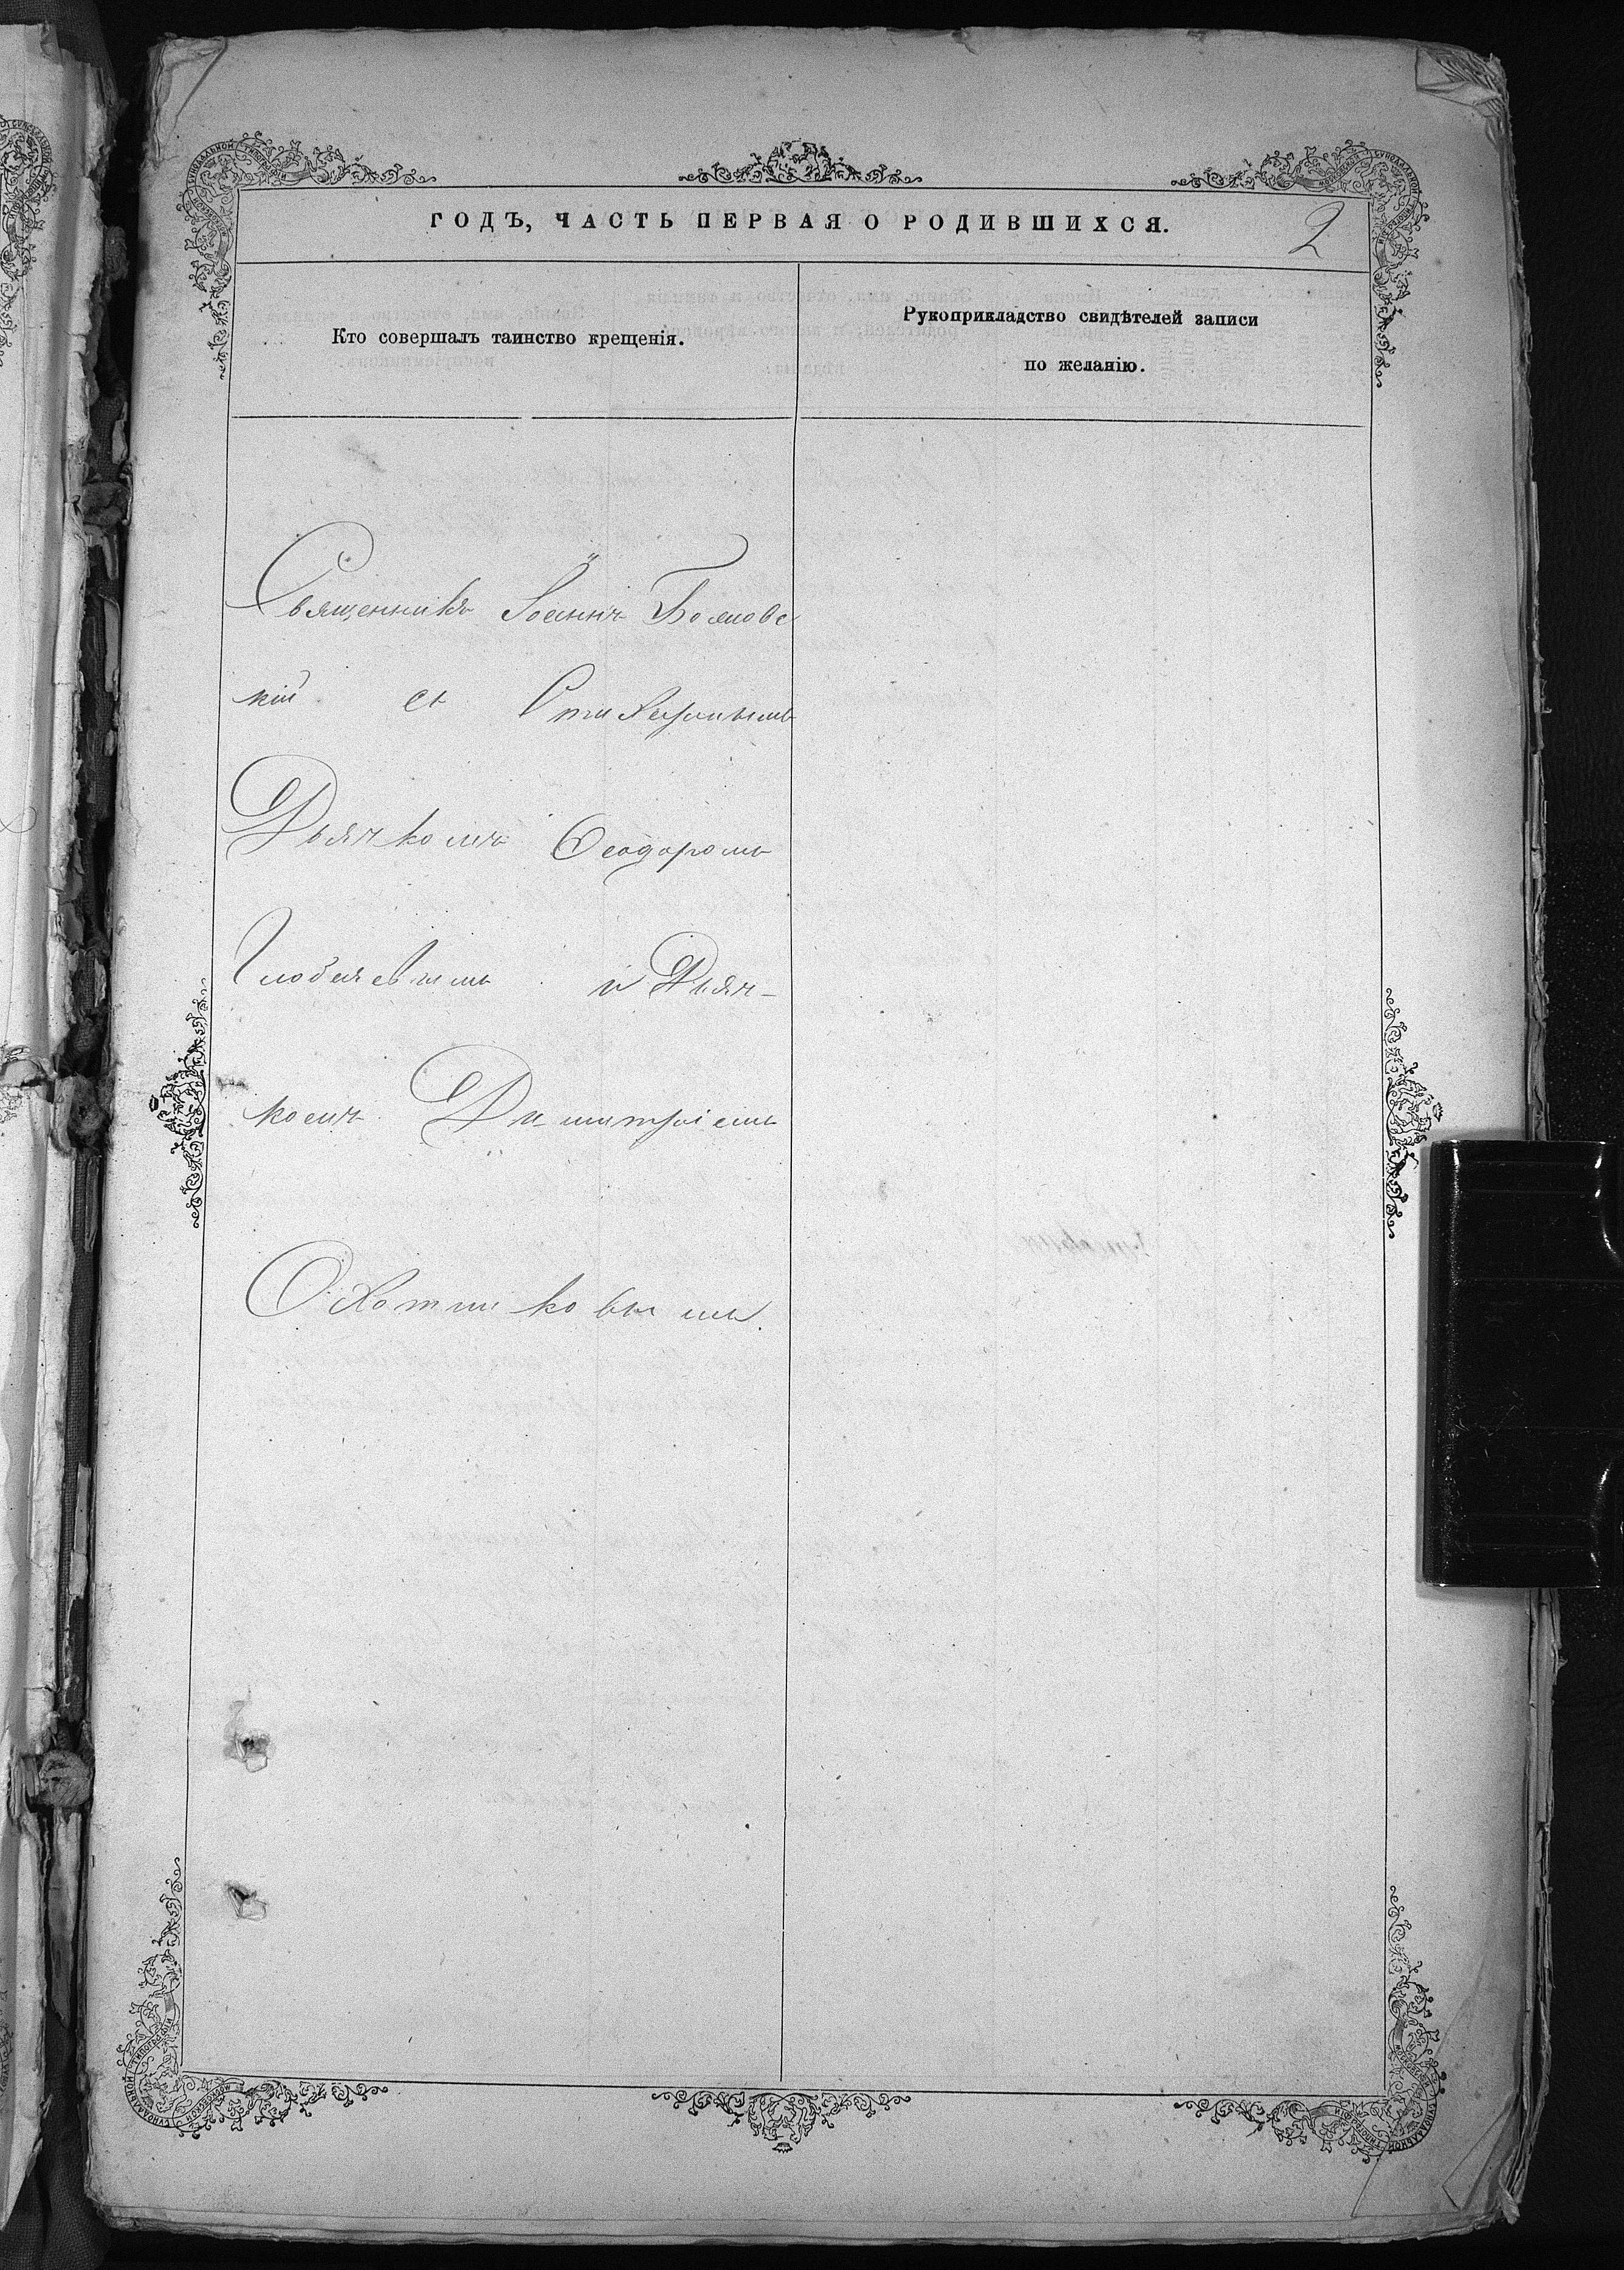 ГОДЪ, ЧАСТЬ ПЕРВАЯ О РОДИВШИХСЯ.
2
Кто совершалъ таинство крещенія.
Рукоприкладство свидѣтелей записи
по желанію.
Священникъ Іоаннъ
кій съ Стихарнымъ
Дьячкомъ Ѳеодоромъ
и Дьяч-
комъ Димитріемъ
Охотниковымъ.